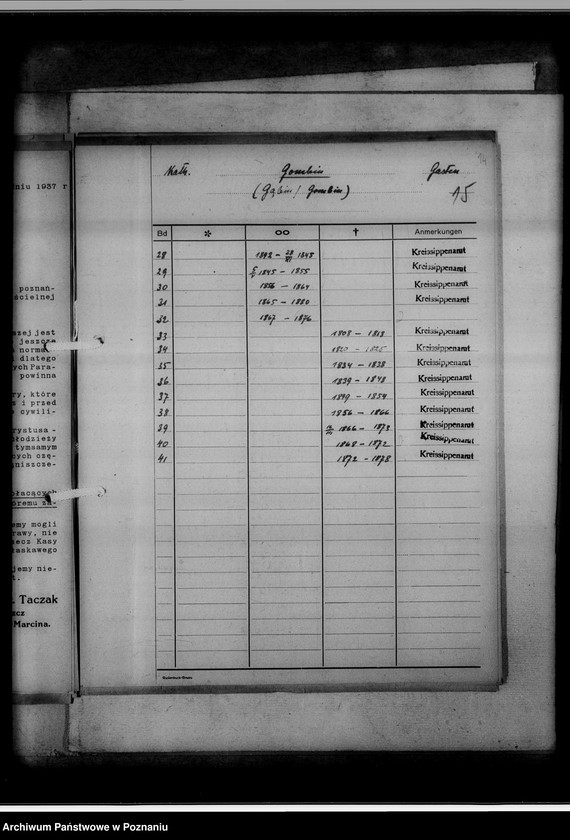 dniu 1937 r
poznan-
ścielnej
szej jest
jeszcze
norma
dlatego
ych Para-
powinna
ry, które
s i przed
cywili-
rystusa -
łodzieży
tymsamym
ych czę-
niszcze-
płacących
óremu za-
emy mogli
rawy, nie
ecz Kasy
łaskawego
jemy nie-
t.
. Taczak
zcz
Marcina.
Kath. Gombin Gasten
(Gąbin / Gombin) 15
Bd * ∞ † Anmerkungen
28 1842 - 28/VI 1848 Kreissippenamt
29 1845 - 1855 Kreissippenamt
30 1856 - 1864 Kreissippenamt
31 1865 - 1880 Kreissippenamt
32 1867 - 1876
33 1808 - 1819 Kreissippenamt
34 1820 - 1825 Kreissippenamt
35 1834 - 1838 Kreissippenamt
36 1839 - 1848 Kreissippenamt
37 1849 - 1854 Kreissippenamt
38 1856 - 1866 Kreissippenamt
39 1866 - 1873 Kreissippenamt
40 1868 - 1872 Kreissippenamt
41 1872 - 1878 Kreissippenamt
Archiwum Państwowe w Poznaniu